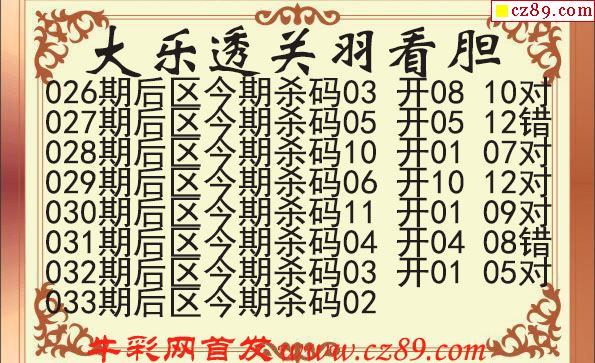 cz89.com
大乐透关羽看胆
026期后区今期杀码03 开08 10对
027期后区今期杀码05 开05 12错
028期后区今期杀码10 开01 07对
029期后区今期杀码06 开10 12对
030期后区今期杀码11 开01 09对
031期后区今期杀码04 开04 08错
032期后区今期杀码03 开01 05对
033期后区今期杀码02
牛彩网首发www.cz89.com